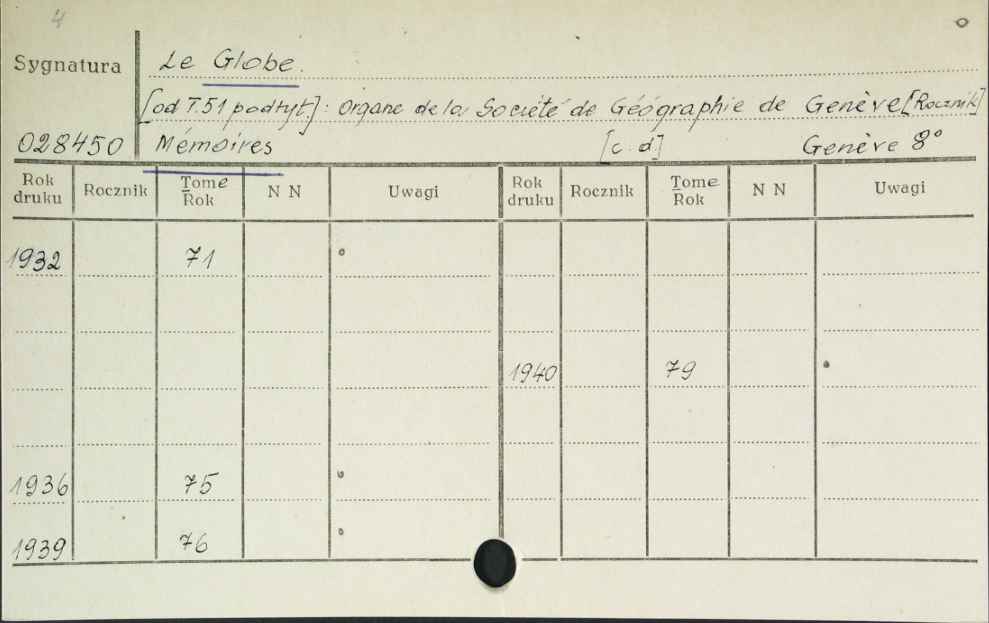 4
Sygnatura Le Globe.
[od T.51 podtyt.]: Organe de la Société de Géographie de Genève [Rocznik]
028450 Mémoires [c.d.] Genève 8°
Rok druku Rocznik Tome Rok N N Uwagi Rok druku Rocznik Tome Rok N N Uwagi
1932 71
1940 79
1936 75
1939 76